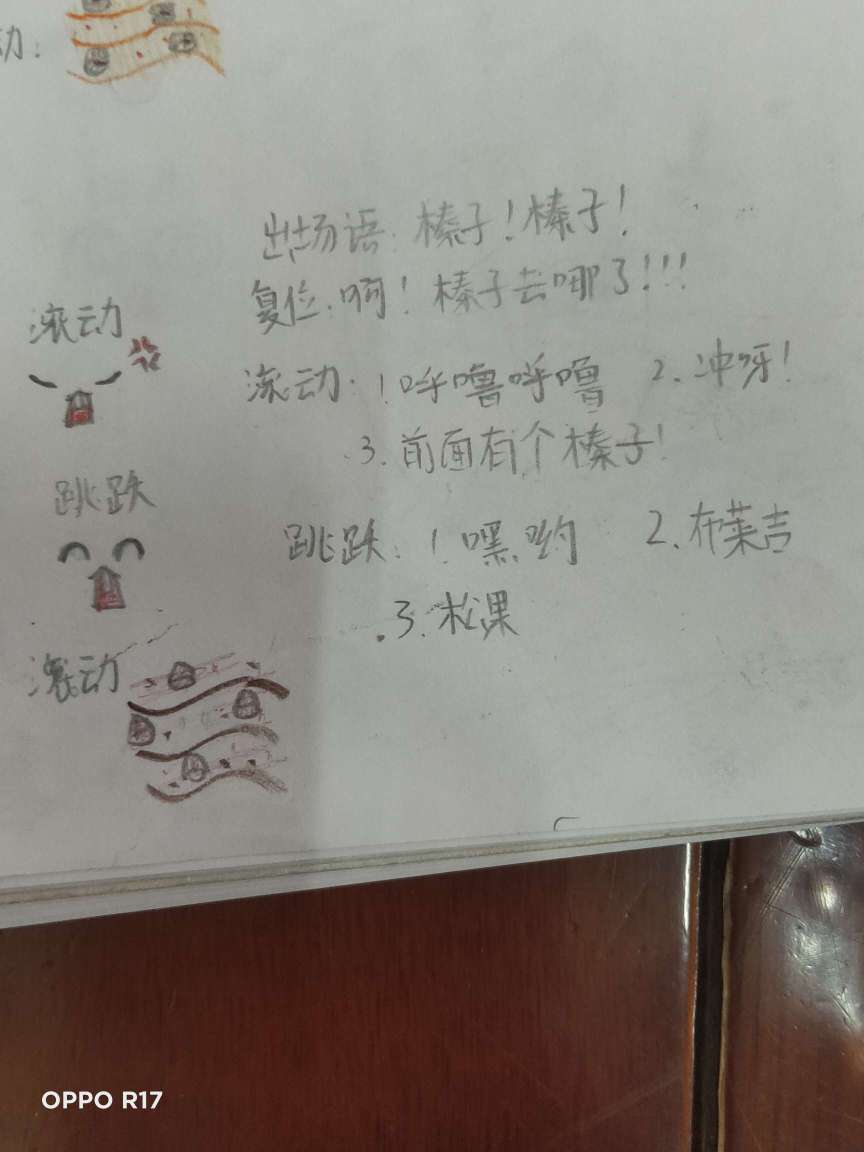 动:
出场语:榛子!榛子!
复位:啊!榛子去哪了!!!
滚动
滚动:1呼噜呼噜 2.冲呀!
3.前面有个榛子!
跳跃
跳跃:1.嘿哟 2.布莱吉
3.松果
滚动
OPPO R17